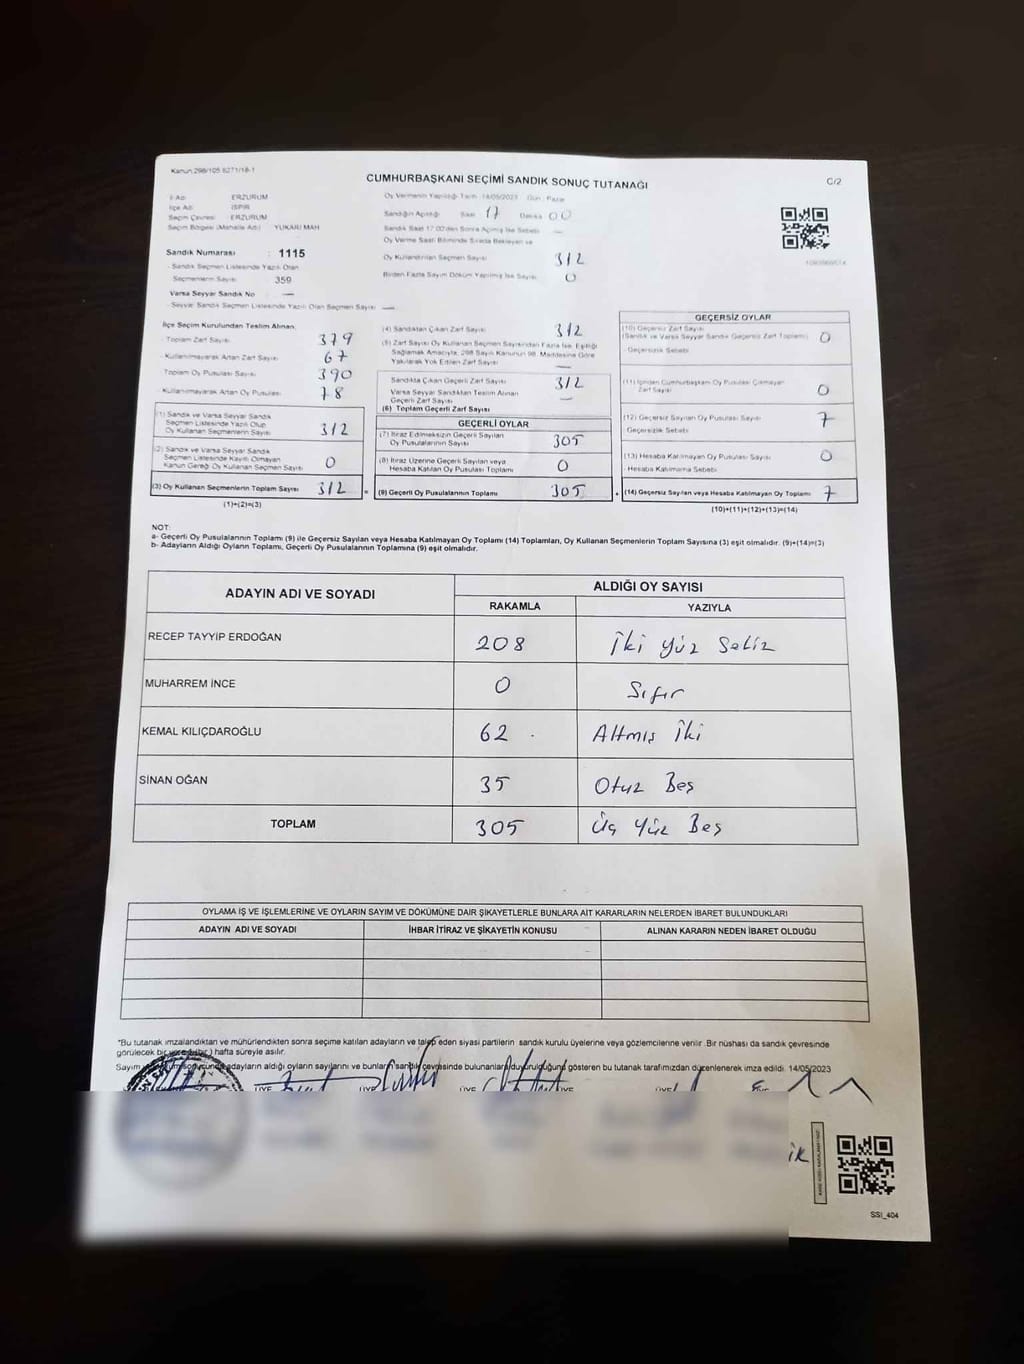 Kanun 298/105 6271/18-1
CUMHURBAŞKANI SEÇİMİ SANDIK SONUÇ TUTANAĞI
C/2
İl Adı ERZURUM
İlçe Adı İSPİR
Seçim Çevresi ERZURUM
Seçim Bölgesi (Mahalle Adı) YUKARI MAH
Sandık Numarası : 1115
- Sandık Seçmen Listesinde Yazılı Olan
Seçmenlerin Sayısı 359
Varsa Seyyar Sandık No —
- Seyyar Sandık Seçmen Listesinde Yazılı Olan Seçmen Sayısı —
Oy Vermenin Yapıldığı Tarih 14/05/2023 Gün Pazar
Sandığın Açıldığı Saat 17 Dakika 00
Sandık Saat 17:00'den Sonra Açılmış İse Sebebi —
Oy Verme Saati Bitiminde Sırada Bekleyen ve
Oy Kullandırılan Seçmen Sayısı 312
Birden Fazla Sayım Döküm Yapılmış İse Sayısı 0
İlçe Seçim Kurulundan Teslim Alınan
- Toplam Zarf Sayısı 379
- Kullanılmayarak Artan Zarf Sayısı 67
Toplam Oy Pusulası Sayısı 390
- Kullanılmayarak Artan Oy Pusulası 78
(1) Sandık ve Varsa Seyyar Sandık
Seçmen Listesinde Yazılı Olup
Oy Kullanan Seçmenlerin Sayısı 312
(2) Sandık ve Varsa Seyyar Sandık
Seçmen Listesinde Kayıtlı Olmayan
Kanun Gereği Oy Kullanan Seçmen Sayısı 0
(3) Oy Kullanan Seçmenlerin Toplam Sayısı 312 =
(1)+(2)=(3)
(4) Sandıktan Çıkan Zarf Sayısı 312
(5) Zarf Sayısı Oy Kullanan Seçmen Sayısından Fazla İse, Eşitliği
Sağlamak Amacıyla, 298 Sayılı Kanunun 98. Maddesine Göre
Yakılarak Yok Edilen Zarf Sayısı —
Sandıkta Çıkan Geçerli Zarf Sayısı 312
Varsa Seyyar Sandıktan Teslim Alınan
Geçerli Zarf Sayısı —
(6) Toplam Geçerli Zarf Sayısı
GEÇERLİ OYLAR
(7) İtiraz Edilmeksizin Geçerli Sayılan
Oy Pusulalarının Sayısı 305
(8) İtiraz Üzerine Geçerli Sayılan veya
Hesaba Katılan Oy Pusulası Toplamı 0
(9) Geçerli Oy Pusulalarının Toplamı 305 +
GEÇERSİZ OYLAR
(10) Geçersiz Zarf Sayısı
(Sandık ve Varsa Seyyar Sandık Geçersiz Zarf Toplamı) 0
- Geçersizlik Sebebi
(11) İçinden Cumhurbaşkanı Oy Pusulası Çıkmayan
Zarf Sayısı 0
(12) Geçersiz Sayılan Oy Pusulası Sayısı 7
Geçersizlik Sebebi
(13) Hesaba Katılmayan Oy Pusulası Sayısı 0
- Hesaba Katılmama Sebebi
(14) Geçersiz Sayılan veya Hesaba Katılmayan Oy Toplamı 7
(10)+(11)+(12)+(13)=(14)
NOT:
a- Geçerli Oy Pusulalarının Toplamı (9) ile Geçersiz Sayılan veya Hesaba Katılmayan Oy Toplamı (14) Toplamları, Oy Kullanan Seçmenlerin Toplam Sayısına (3) eşit olmalıdır. (9)+(14)=(3)
b- Adayların Aldığı Oyların Toplamı, Geçerli Oy Pusulalarının Toplamına (9) eşit olmalıdır.
ADAYIN ADI VE SOYADI ALDIĞI OY SAYISI
RAKAMLA YAZIYLA
RECEP TAYYİP ERDOĞAN 208 İki Yüz Sekiz
MUHARREM İNCE 0 Sıfır
KEMAL KILIÇDAROĞLU 62 Altmış İki
SİNAN OĞAN 35 Otuz Beş
TOPLAM 305 Üç Yüz Beş
OYLAMA İŞ VE İŞLEMLERİNE VE OYLARIN SAYIM VE DÖKÜMÜNE DAİR ŞİKAYETLERLE BUNLARA AİT KARARLARIN NELERDEN İBARET BULUNDUKLARI
ADAYIN ADI VE SOYADI İHBAR İTİRAZ VE ŞİKAYETİN KONUSU ALINAN KARARIN NEDEN İBARET OLDUĞU
*Bu tutanak imzalandıktan ve mühürlendikten sonra seçime katılan adayların ve talep eden siyasi partilerin sandık kurulu üyelerine veya gözlemcilerine verilir. Bir nüshası da sandık çevresinde
görülecek bir yere bir hafta süreyle asılır.
Sayım döküm sonucunda adayların aldığı oyların sayılarını ve bunların sandık çevresinde bulunanlara duyurulduğunu gösteren bu tutanak tarafımızdan düzenlenerek imza edildi. 14/05/2023
ÜYE ÜYE ÜYE
ik
SSI_404